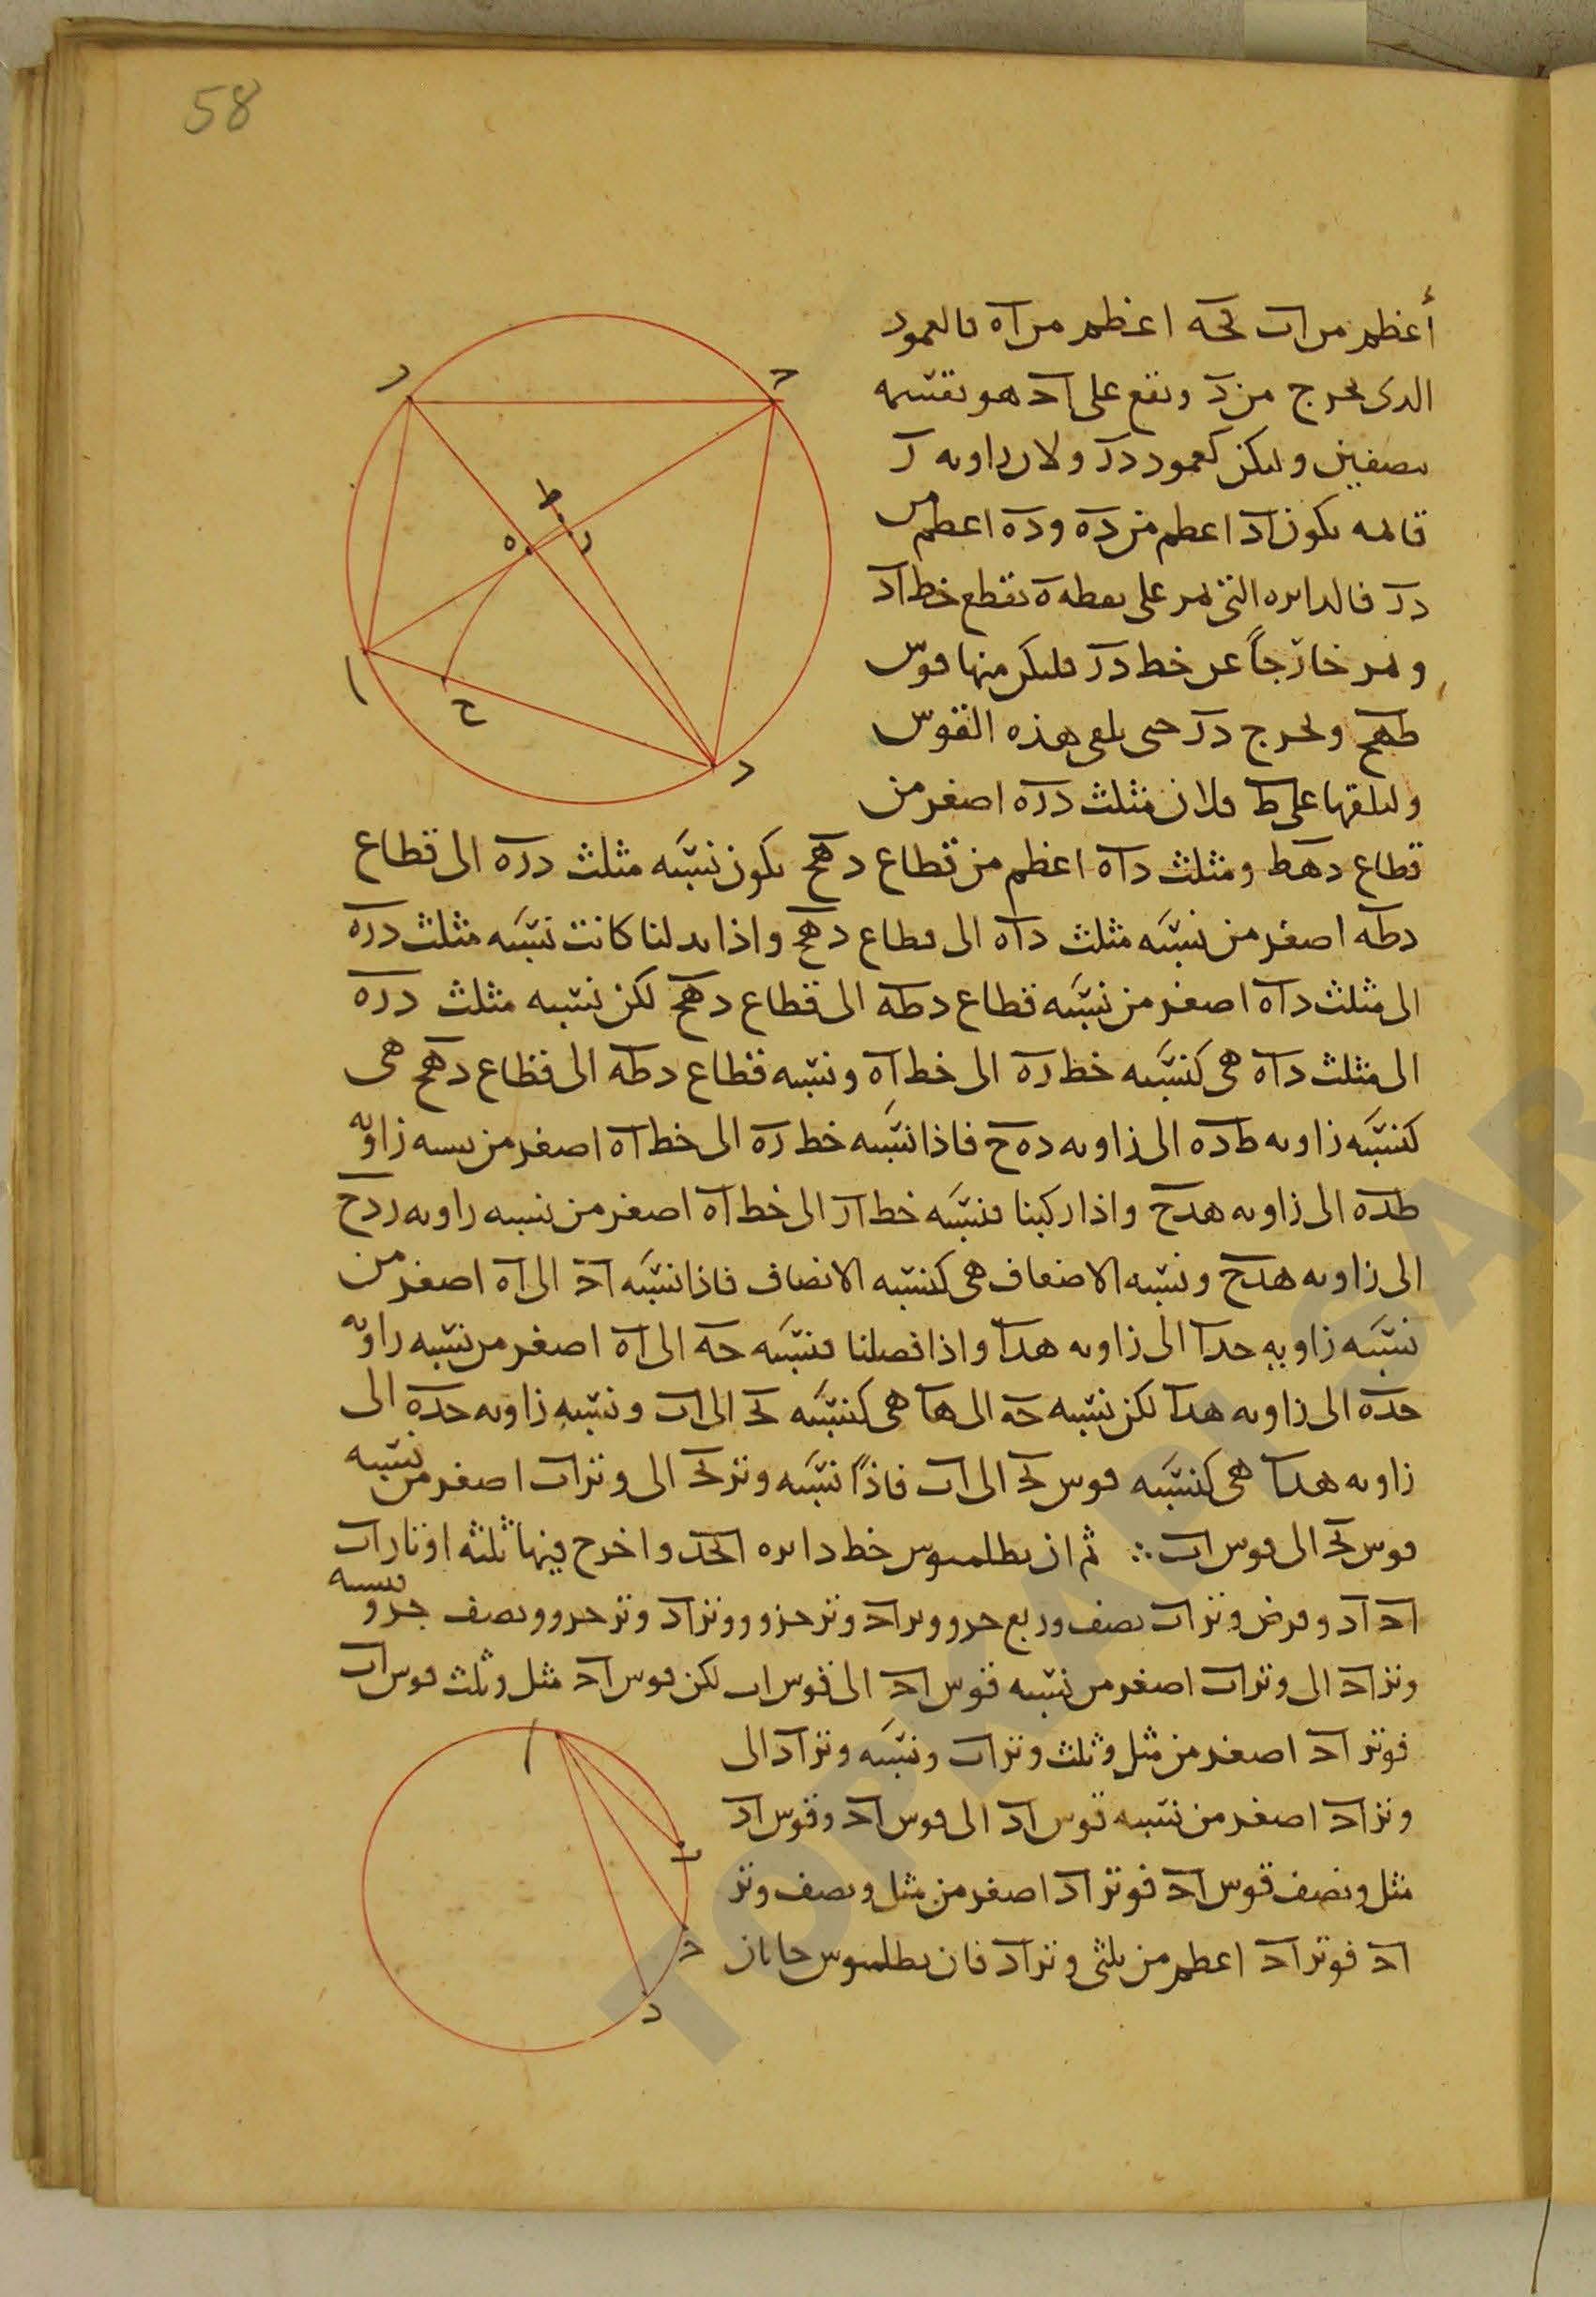 58
أعظم من اب فجه اعظم من اه فالعمود
الذى يخرج من د ويقع على اج هو يقسمه
بنصفين وليكن كعمود در ولان زاويه ر
قائمه يكون اد اعظم من ده وده اعظم من
در فالدائره التى تمر على نقطه ه تقطع خط اد
وتمر خارجاً عن خط در فليكن منها قوس
طهح ونخرج در حتى يلقى هذه القوس
وليلقها على ط فلان مثلث دره اصغر من
قطاع دهط ومثلث داه اعظم من قطاع دهح يكون نسبه مثلث دره الى قطاع
دطه اصغر من نسبه مثلث داه الى قطاع دهح واذا بدلنا كانت نسبه مثلث دره
الى مثلث داه اصغر من نسبه قطاع دطه الى قطاع دهح لكن نسبه مثلث دره
الى مثلث داه هى كنسبه خط ره الى خط اه ونسبه قطاع دطه الى قطاع دهح هى
كنسبه زاويه طده الى زاويه دهح فاذا نسبه خط ره الى خط اه اصغر من نسبه زاويه
طده الى زاويه هدح واذا ركبنا فنسبه خط ار الى خط اه اصغر من نسبه زاويه ردح
الى زاويه هدح ونسبه الاضعاف هى كنسبه الانصاف فاذا نسبه اج الى اه اصغر من
نسبه زاويه جدا الى زاويه هدا واذا فصلنا فنسبه جه الى اه اصغر من نسبه زاويه
جده الى زاويه هدا لكن نسبه جه الى ها هى كنسبه بج الى اب ونسبه زاويه جده الى
زاويه هدا هى كنسبه قوس بج الى اب فاذاً نسبه وتر بج الى وتر اب اصغر من نسبه
قوس بج الى قوس اب ∴ ثم ان بطلميوس خط دائره ابجد واخرج فيها ثلثه اوتار اب
اج اد وفرض وتر اب نصف وربع جزو ووتر اج وتر جزو ووتر اد وتر جزو ونصف جزو فنسبه
وتر اج الى وتر اب اصغر من نسبه قوس اج الى قوس اب لكن قوس اج مثل وثلث قوس اب
فوتر اج اصغر من مثل وثلث وتر اب ونسبه وتر اد الى
وتر اج اصغر من نسبه قوس اد الى قوس اج وقوس اد
مثل ونصف قوس اج فوتر اد اصغر من مثل ونصف وتر
اج فوتر اج اعظم من ثلثى وتر اد فان بطلميوس
د
ج
ط
ه
ر
ا
ح
د
ا
ب
ج
د
TOPKAPI SAR